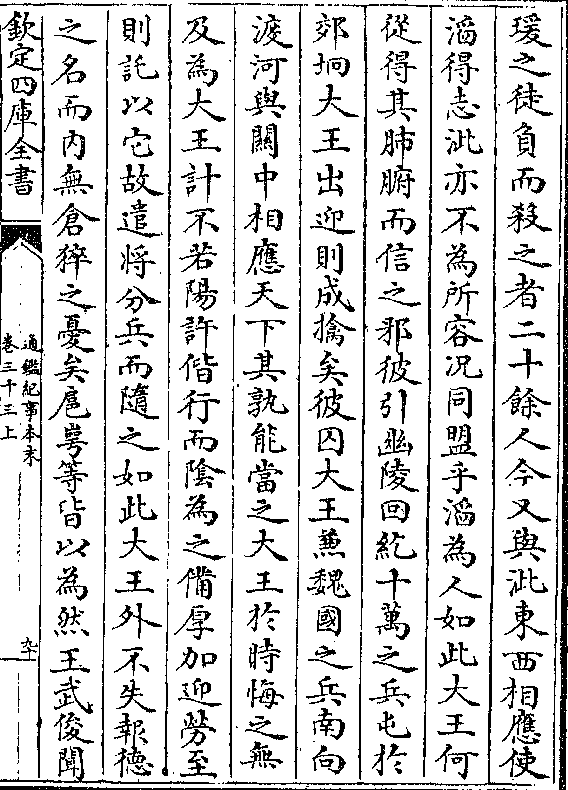 瑗之徒負而殺之者二十餘人今又與泚東西相應使
滔得志泚亦不為所容況同盟乎滔為人如此大王何
從得其肺腑而信之邪彼引幽陵回紇十萬之兵屯於
郊坰大王出迎則成擒矣彼囚大王兼魏國之兵南向
渡河與關中相應天下其孰能當之大王於時悔之無
及為大王計不若陽許偕行而陰為之備厚加迎勞至
則託以它故遣將分兵而隨之如此大王外不失報德
之名而内無倉猝之憂矣扈崿等皆以為然王武俊聞
欽定四庫全書
通鑑紀事本末
卷三十三上